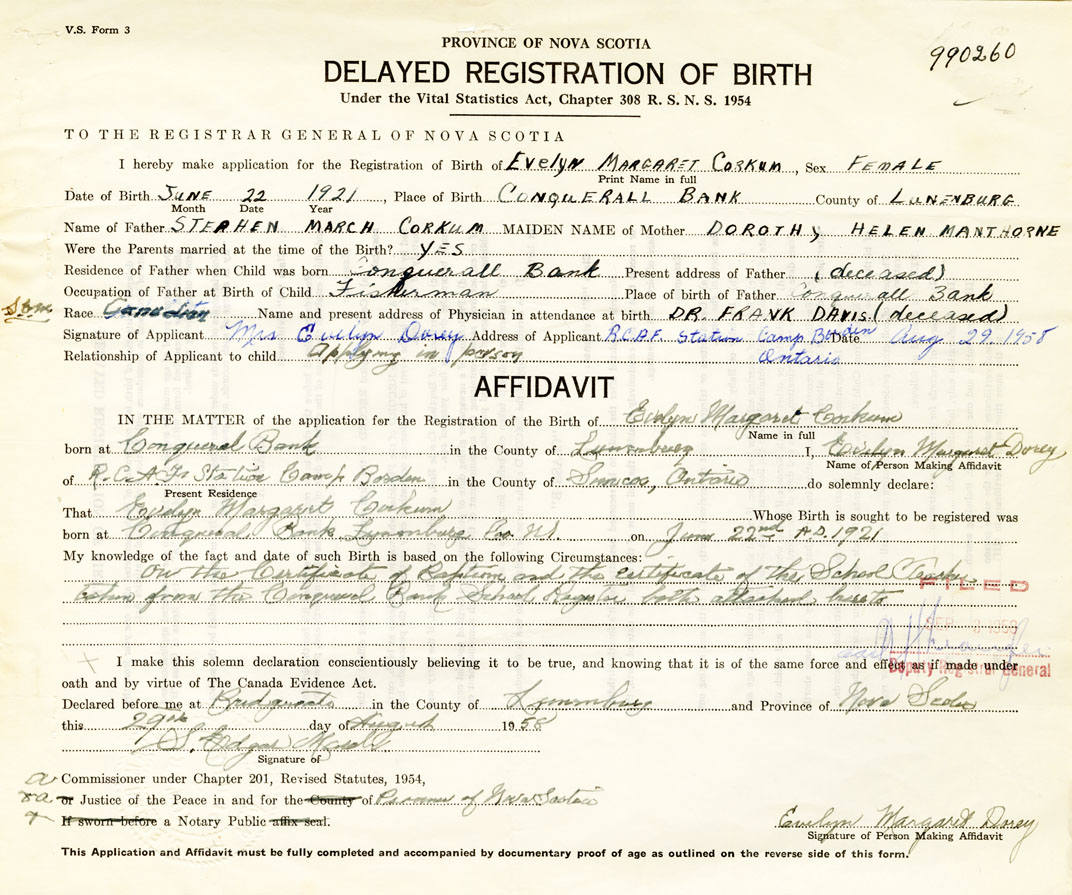 V.S. Form 3
PROVINCE OF NOVA SCOTIA
990260
DELAYED REGISTRATION OF BIRTH
Under the Vital Statistics Act, Chapter 308 R. S. N. S. 1954
TO THE REGISTRAR GENERAL OF NOVA SCOTIA
I hereby make application for the Registration of Birth of Evelyn Margaret Corkum, Sex Female
Print Name in full
Date of Birth June 22 1921, Place of Birth Conquerall Bank County of Lunenburg
Month Date Year
Name of Father Stephen March Corkum MAIDEN NAME of Mother Dorothy Helen Manthorne
Were the Parents married at the time of the Birth? Yes
Residence of Father when Child was born Conquerall Bank Present address of Father (deceased)
Occupation of Father at Birth of Child Fisherman Place of birth of Father Conquerall Bank
Race Canadian Name and present address of Physician in attendance at birth Dr. Frank Davis (deceased)
Signature of Applicant Mrs Evelyn Dorey Address of Applicant R.C.A.F. Station Camp Borden Date Aug 29. 1958
Relationship of Applicant to child Applying in person Ontario
AFFIDAVIT
IN THE MATTER of the application for the Registration of the Birth of Evelyn Margaret Corkum
Name in full
born at Conqueral Bank in the County of Lunenburg I, Evelyn Margaret Dorey
Name of Person Making Affidavit
of R.C.A.F. Station Camp Borden in the County of Simcoe, Ontario do solemnly declare:
Present Residence
That Evelyn Margaret Corkum Whose Birth is sought to be registered was
born at Conqueral Bank Lunenburg Co. N.S. on June 22nd A.D. 1921
My knowledge of the fact and date of such Birth is based on the following Circumstances:
On the Certificate of Baptism and the certificate of the School Clerk
taken from the Conqueral Bank School Register both attached hereto
FILED
SEP 3 1958
Deputy Registrar General
I make this solemn declaration conscientiously believing it to be true, and knowing that it is of the same force and effect as if made under
oath and by virtue of The Canada Evidence Act.
Declared before me at Bridgewater in the County of Lunenburg and Province of Nova Scotia
this 29th day of August 1958
S. Edgar
Signature of
a Commissioner under Chapter 201, Revised Statutes, 1954,
or Justice of the Peace in and for the County of Province of Nova Scotia
If sworn before a Notary Public affix seal.
Evelyn Margaret Dorey
Signature of Person Making Affidavit
This Application and Affidavit must be fully completed and accompanied by documentary proof of age as outlined on the reverse side of this form.